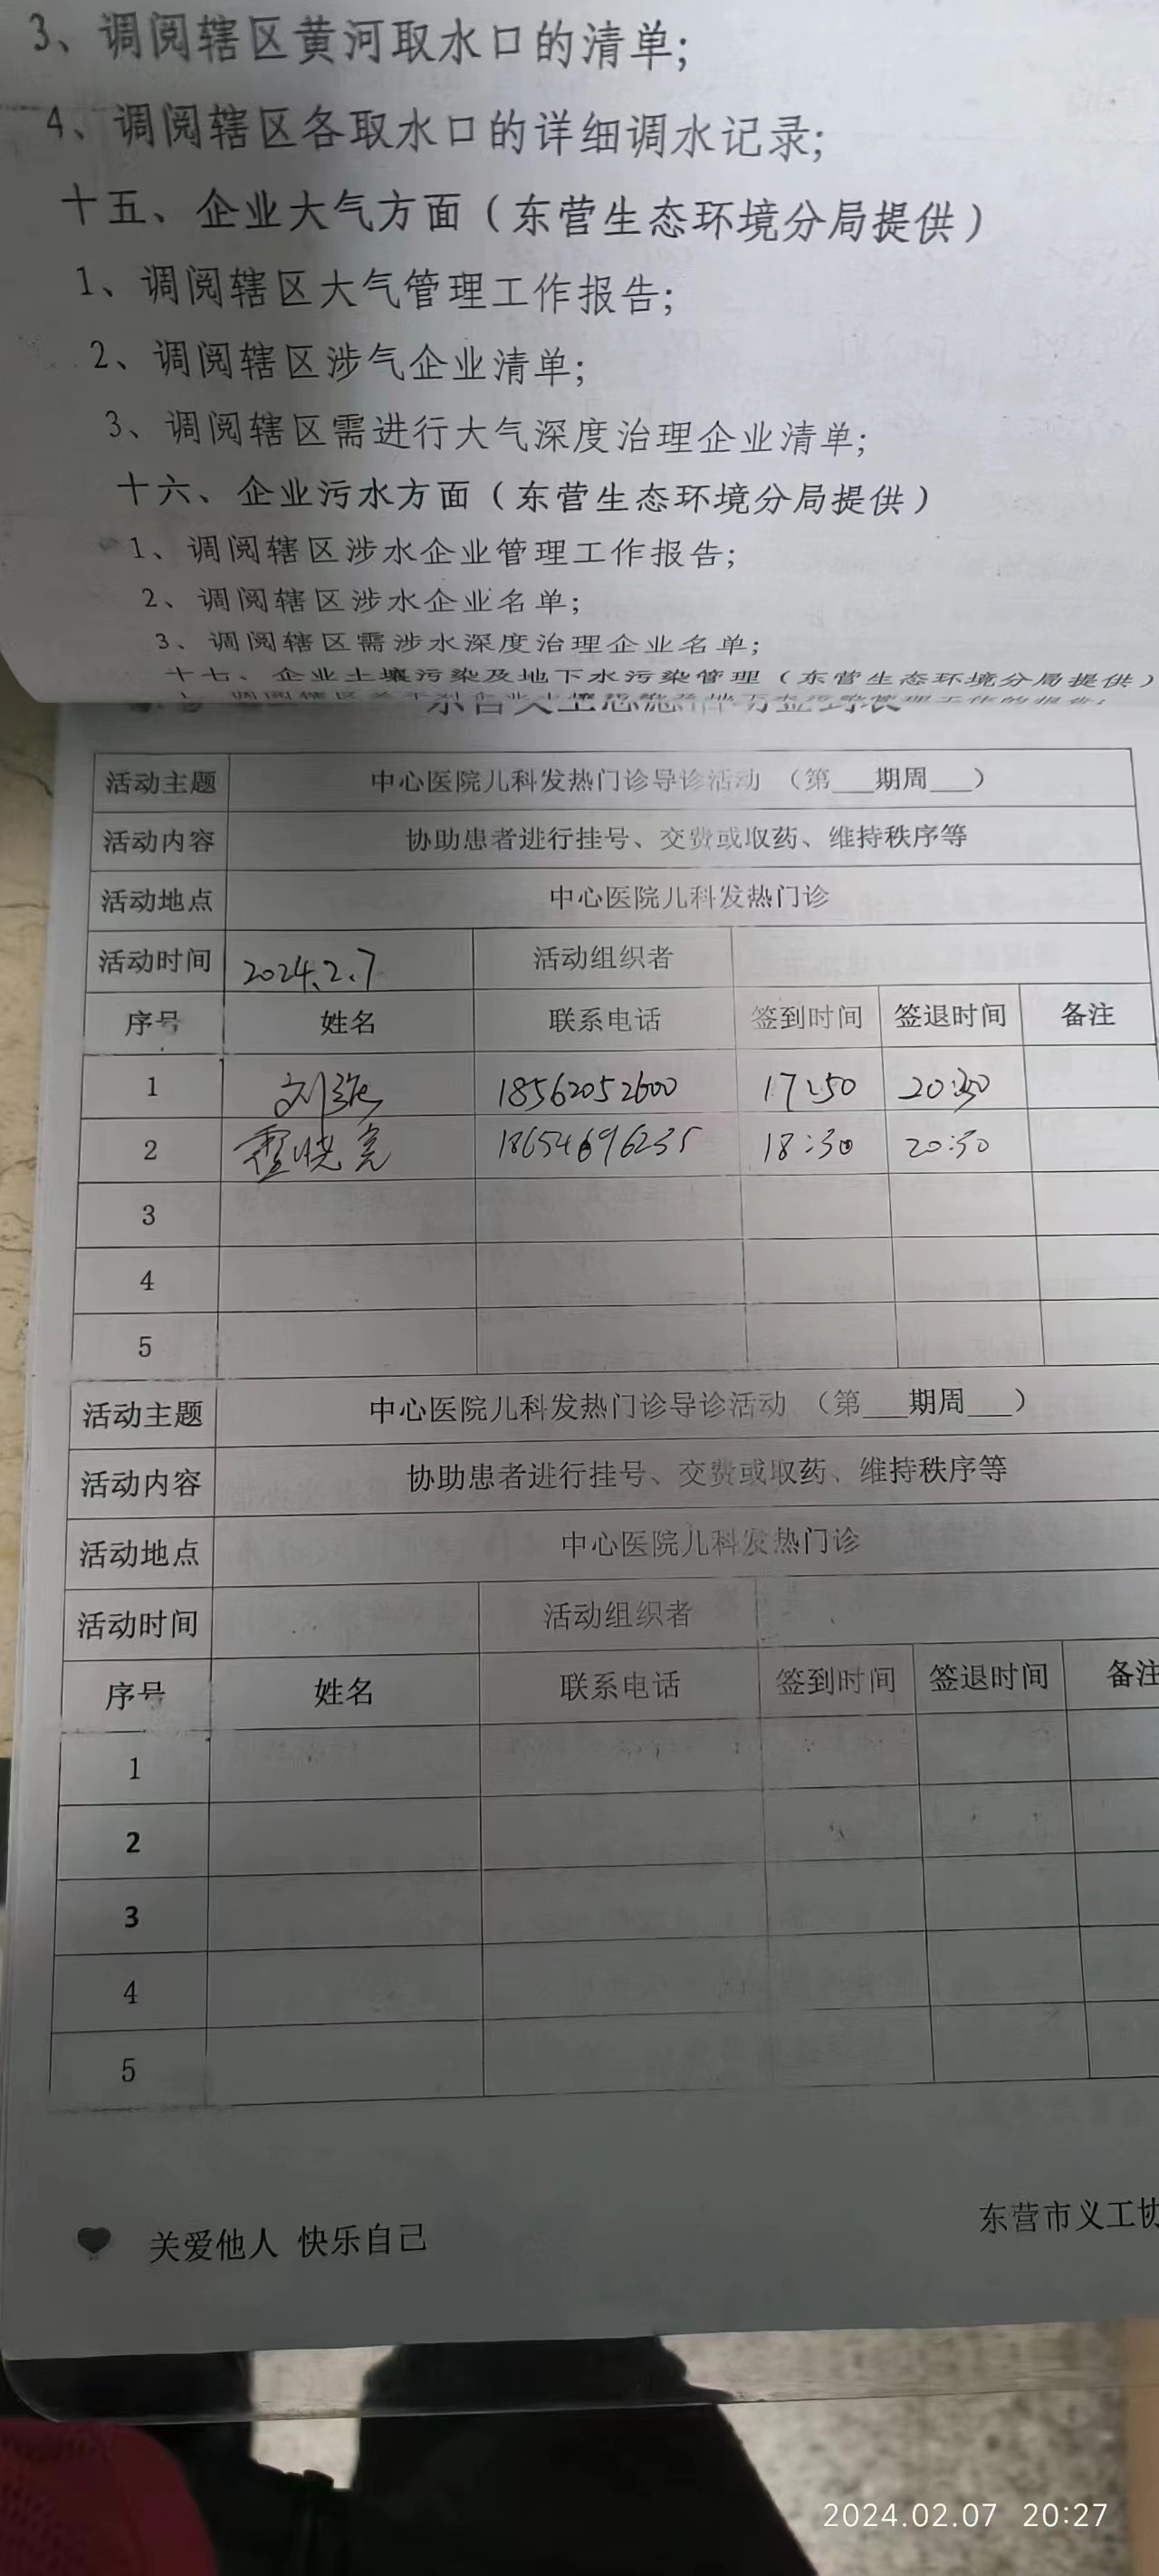 3、调阅辖区黄河取水口的清单;
4、调阅辖区各取水口的详细调水记录;
十五、企业大气方面（东营生态环境分局提供）
1、调阅辖区大气管理工作报告;
2、调阅辖区涉气企业清单;
3、调阅辖区需进行大气深度治理企业清单;
十六、企业污水方面（东营生态环境分局提供）
1、调阅辖区涉水企业管理工作报告;
2、调阅辖区涉水企业名单;
3、调阅辖区需涉水深度治理企业名单;
十七、企业土壤污染及地下水污染管理（东营生态环境分局提供）
活动主题 中心医院儿科发热门诊导诊活动 （第___期周___）
活动内容 协助患者进行挂号、交费或取药、维持秩序等
活动地点 中心医院儿科发热门诊
活动时间 2024.2.7 活动组织者
序号 姓名 联系电话 签到时间 签退时间 备注
1 刘 18562052600 17:50 20:30
2 霍晓亮 18654696235 18:30 20:30
3
4
5
活动主题 中心医院儿科发热门诊导诊活动 （第___期周___）
活动内容 协助患者进行挂号、交费或取药、维持秩序等
活动地点 中心医院儿科发热门诊
活动时间 活动组织者
序号 姓名 联系电话 签到时间 签退时间 备注
1
2
3
4
5
关爱他人 快乐自己
东营市义工协
2024.02.07 20:27